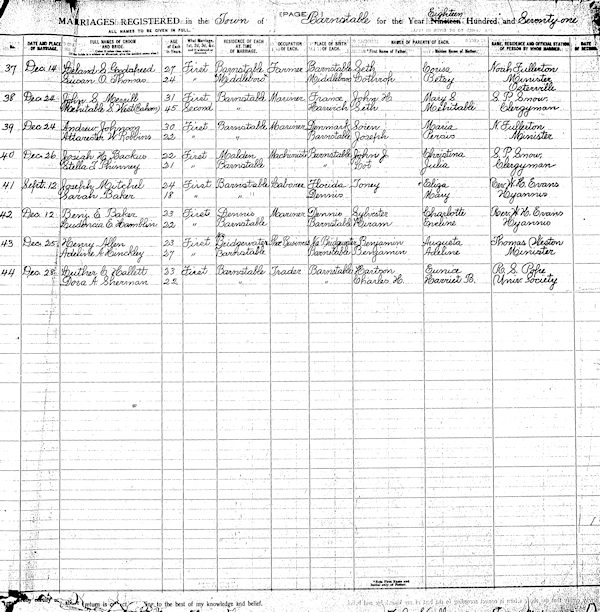 MARRIAGES REGISTERED in the Town of (PAGE) Barnstable for the Year Eighteen Nineteen Hundred and Seventy one
ALL NAMES TO BE GIVEN IN FULL.
No. DATE AND PLACE OF MARRIAGE. FULL NAMES OF GROOM AND BRIDE. AGE of Each in Years. What Marriage, 1st, 2d, 3d, &c. RESIDENCE OF EACH AT TIME OF MARRIAGE. OCCUPATION OF EACH. PLACE OF BIRTH OF EACH. NAMES OF PARENTS OF EACH. NAME, RESIDENCE AND OFFICIAL STATION OF PERSON BY WHOM MARRIED. DATE OF RECORD.
*First Name of Father. Maiden Name of Mother.
37 Dec. 14 Leland S. 27 First Barnstable Farmer Barnstable Seth Noah Fullerton
Susan O. Thomas 24 " Middleboro Middleboro Lothrop Betsy Minister
Osterville
38 Dec. 24 John S. Merrill 31 First Barnstable Mariner France John H. Mary S. S. P. Snow
Mehitable S. 45 Second " Harwich Seth Mehitable Clergyman
39 Dec. 24 Andrew Johnson 30 First Barnstable Mariner Denmark Maria N. Fullerton
W. Robbins 22 " " Barnstable Joseph Minister
40 Dec. 26 Joseph H. Backus 22 First Malden Machinist Barnstable John J. Christina S. P. Snow,
Stella L. Phinney 21 " Barnstable " Julia Clergyman
41 Sept. 12 Joseph Mitchel 24 First Barnstable Laborer Florida Toney Eliza Rev. W. H. Evans
Sarah Baker 18 " " Dennis Mary Hyannis
42 Dec. 12 Benj. E. Baker 23 First Dennis Mariner Dennis Sylvester Charlotte Rev. W. H. Evans
Hamblin 22 " Barnstable Barnstable Hiram Emeline Hyannis
43 Dec. 25 Henry Allen 23 First Bridgewater Bridgewater Benjamin Augusta Thomas Weston
Adeline A. Hinckley 27 " Barnstable Barnstable Benjamin Adeline Minister
44 Dec. 28 Luther C. Hallett 33 First Barnstable Trader Barnstable Eunice R. S. Pope
Dora A. Sherman 22 " " Charles H. Harriet B. Univ. Society
*Note First Name and
Initial only of Father.
to the best of my knowledge and belief.